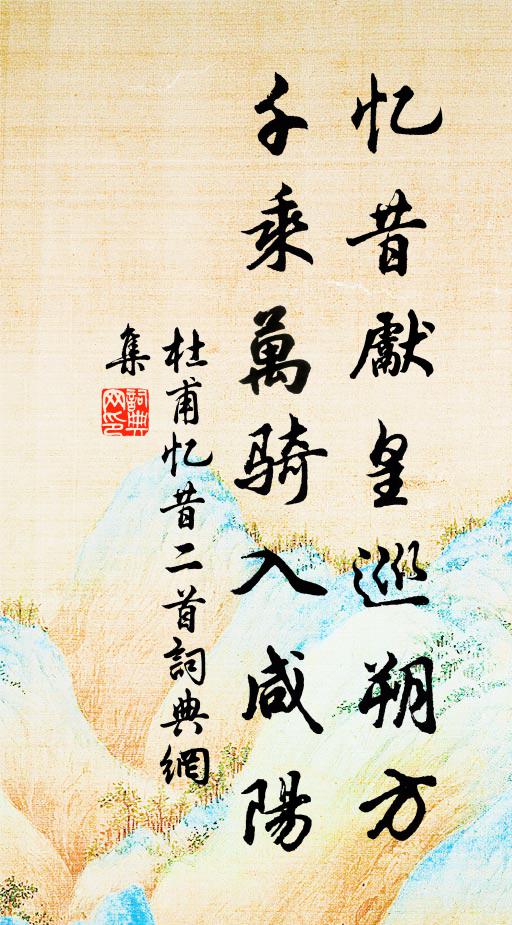 忆昔獻皇巡朔方
千乘萬骑入咸陽
杜甫忆昔二首詞典網
集
詞典
网印